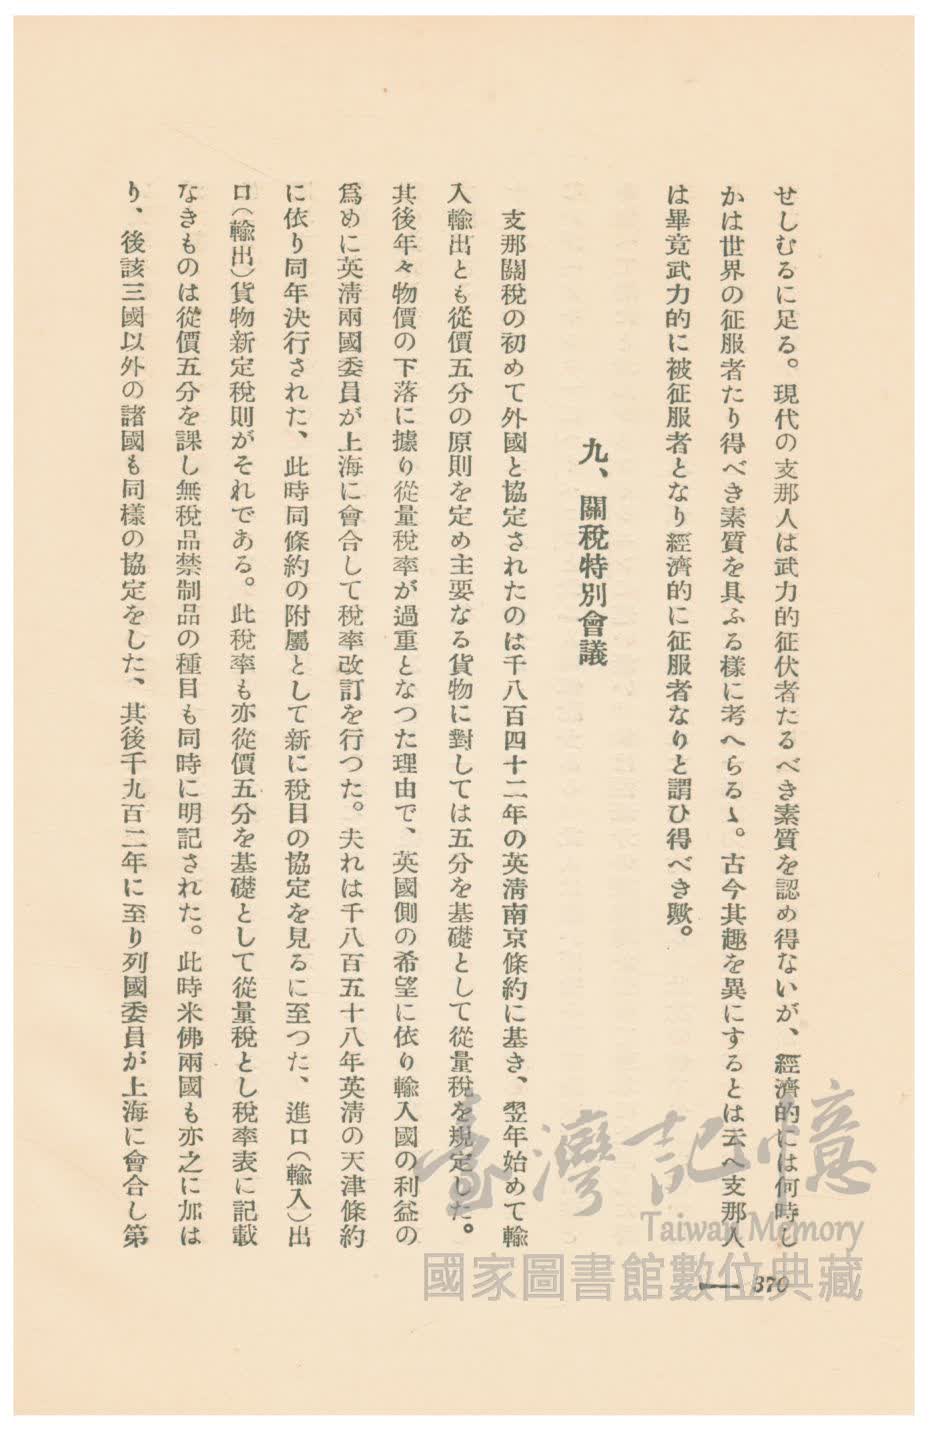 せしむるに足る。現代の支那人は武力的征伏者たるべき素質を認め得ないが、經濟的には何時し
かは世界の征服者たり得べき素質を具ふる樣に考へらるゝ。古今其趣を異にするとは云へ支那人
は畢竟武力的に被征服者となり經濟的に征服者なりと謂ひ得べき歟。
九、關稅特別會議
支那關稅の初めて外國と協定されたのは千八百四十二年の英淸南京條約に基き、翌年始めて輸
入輸出とも從價五分の原則を定め主要なる貨物に對しては五分を基礎として從量稅を規定した。
其後年々物價の下落に據り從量稅率が過重となつた理由で、英國側の希望に依り輸入國の利益の
爲めに英淸兩國委員が上海に會合して稅率改訂を行つた。夫れは千八百五十八年英淸の天津條約
に依り同年決行された、此時同條約の附屬として新に稅目の協定を見るに至つた、進口(輸入)出
口(輸出)貨物新定稅則がそれである。此稅率も亦從價五分を基礎として從量稅とし稅率表に記載
なきものは從價五分を課し無稅品禁制品の種目も同時に明記された。此時米佛兩國も亦之に加は
り、後該三國以外の諸國も同樣の協定をした、其後千九百二年に至り列國委員が上海に會合し第
370
臺灣記憶
Taiwan Memory
國家圖書館數位典藏